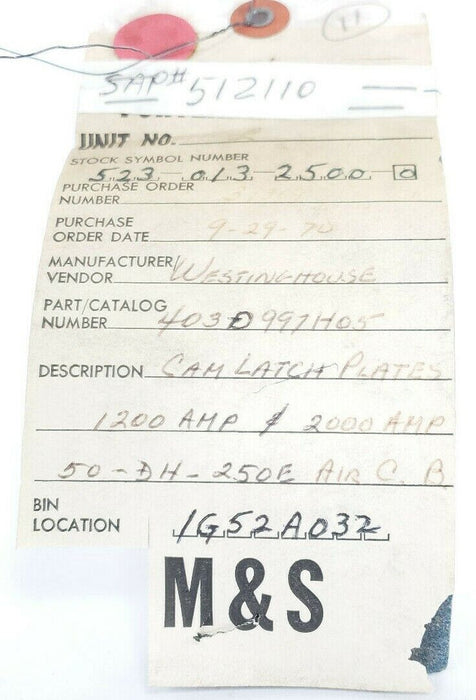 11
SAP# 512110
UNIT NO.
STOCK SYMBOL NUMBER
523 013 2500 0
PURCHASE ORDER
NUMBER
PURCHASE
ORDER DATE 9-29-70
MANUFACTURER/
VENDOR WESTINGHOUSE
PART/CATALOG
NUMBER 403D997H05
DESCRIPTION CAM LATCH PLATES
1200 AMP & 2000 AMP
50-DH-250E AIR C.B
BIN
LOCATION 1G52A032
M&S